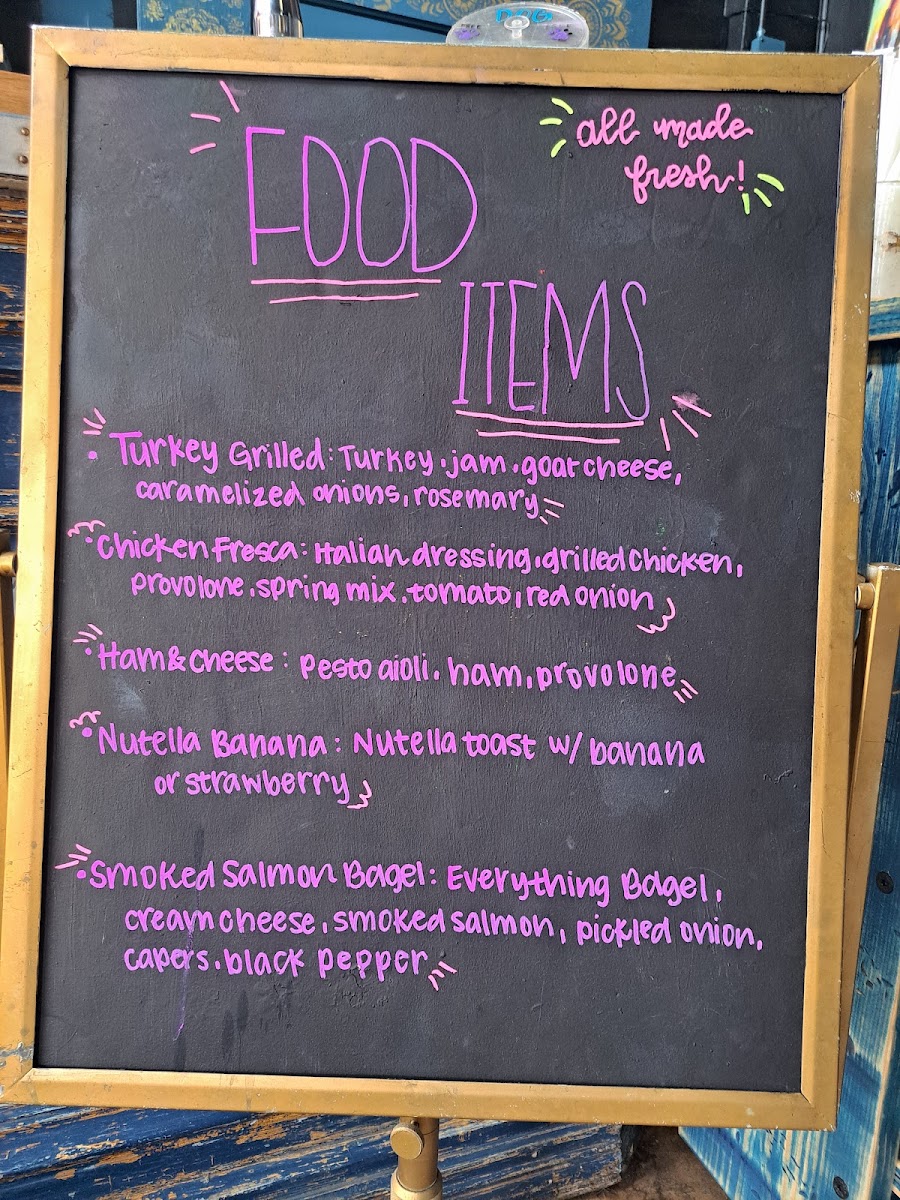 FOOD
ITEMS
all made
fresh!
• Turkey Grilled: Turkey, jam, goat cheese,
caramelized onions, rosemary
• Chicken Fresca: Italian dressing, grilled chicken,
provolone, spring mix, tomato, red onion
• Ham & cheese: pesto aioli, ham, provolone
• Nutella Banana: Nutella toast w/ banana
or strawberry
• Smoked Salmon Bagel: Everything Bagel,
cream cheese, smoked salmon, pickled onion,
capers, black pepper